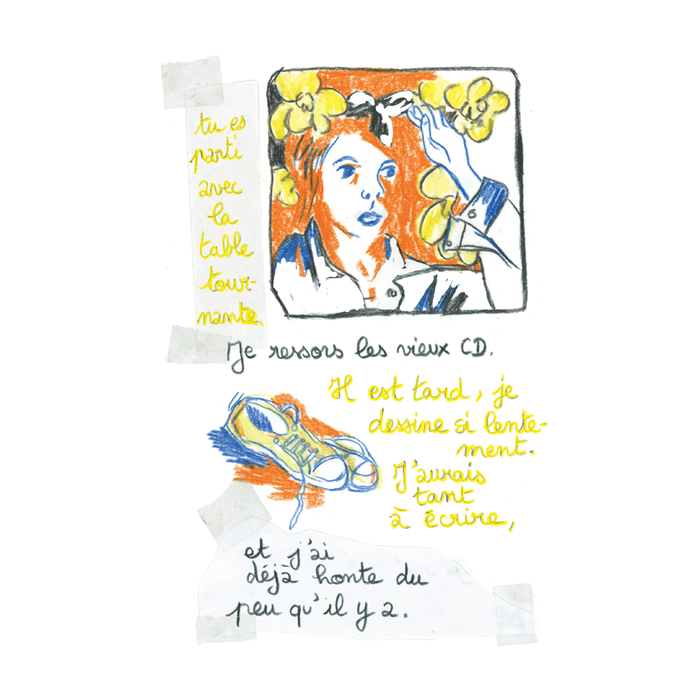 tu es
parti
avec
la
table
tour-
nante.
Je ressors les vieux CD.
Il est tard, je
dessine si lente-
ment.
J'aurais
tant
à écrire,
et j'ai
déjà honte du
peu qu'il y a.